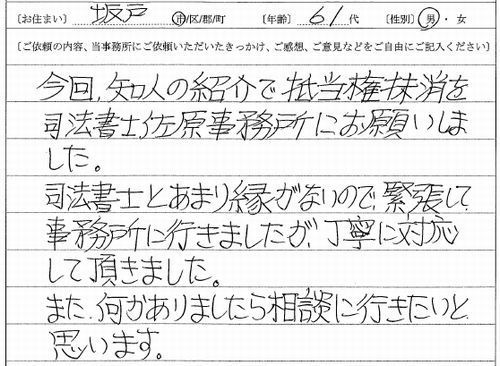 〔お住まい〕 坂戸 市/区/郡/町 〔年齢〕 61代 〔性別〕 男・女
〔ご依頼の内容、当事務所にご依頼いただいたきっかけ、ご感想、ご意見などをご自由にご記入ください〕
今回、知人の紹介で抵当権抹消を
司法書士佐原事務所にお願いしま
した。
司法書士とあまり縁がないので、緊張して
事務所に行きましたが、丁寧に対応
して頂きました。
また、何かありましたら相談に行きたいと
思います。